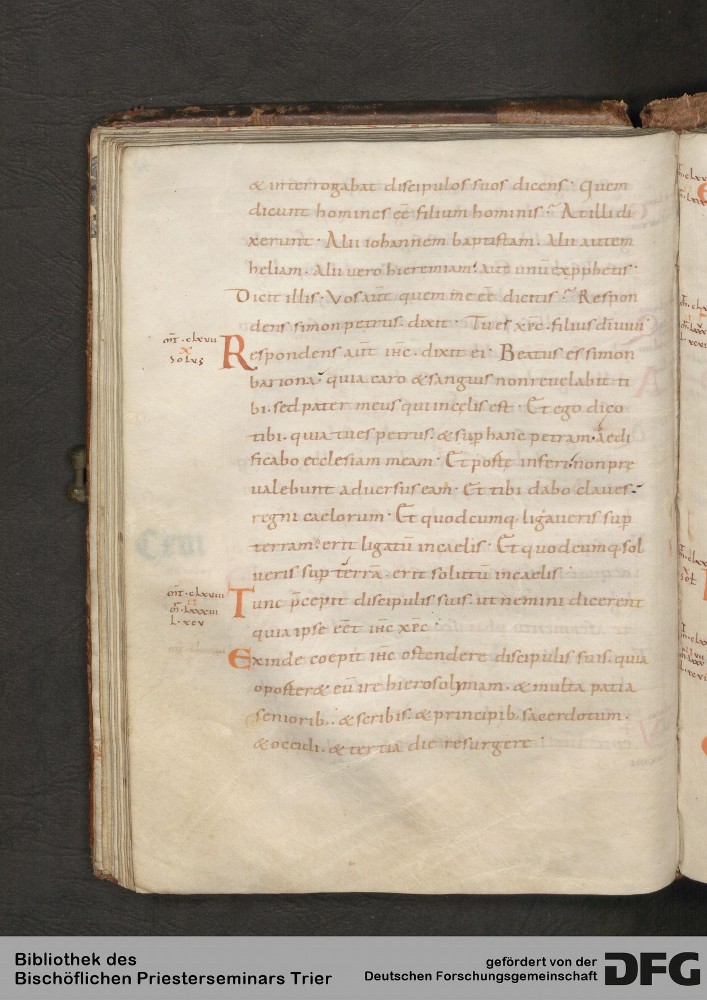 & interrogabat discipulos suos dicens· Quem
dicunt homines eē filium hominis· At illi di
xerunt· Alii iohannem baptistam· Alii autem
heliam· Alii vero hieremiam· aut unū ex pphetis·
Dicit illis· Vos aūt quem me eē dicitis· Respon
dens simon petrus· dixit· Tu es xp̄c· filius dī uiui
m̄t· clxvii
x
Solus
Respondens aūt ih̄c· dixit ei· Beatus es simon
bariona· quia caro & sanguis non revelabit ti
bi· sed pater meus qui in cęlis est· Et ego dico
tibi· quia tu es petrus· & sup hanc petram· aedi
ficabo ecclesiam meam· Et portę inferi· non pre
ualebunt adversus eam· Et tibi dabo claues
regni caelorum· Et quodcumq· ligaveris sup
terram· erit ligatū in caelis· Et quodcumq· sol
ueris sup terrā· erit solutū in caelis·
m̄t· clxviii
m̄r· lxxxiii
L· xcv
Tunc p̄cepit discipulis suis· ut nemini dicerent
quia ipse eēt ih̄c xp̄c·
Exinde coepit ih̄c ostendere discipulis suis· quia
oporter& eū ire hierosolymam· & multa patia
senioribˌ· & scribis· & principibˌ sacerdotum·
& occidi· & tertia die resurgere·
Bibliothek des
Bischöflichen Priesterseminars Trier
gefördert von der
Deutschen Forschungsgemeinschaft
DFG